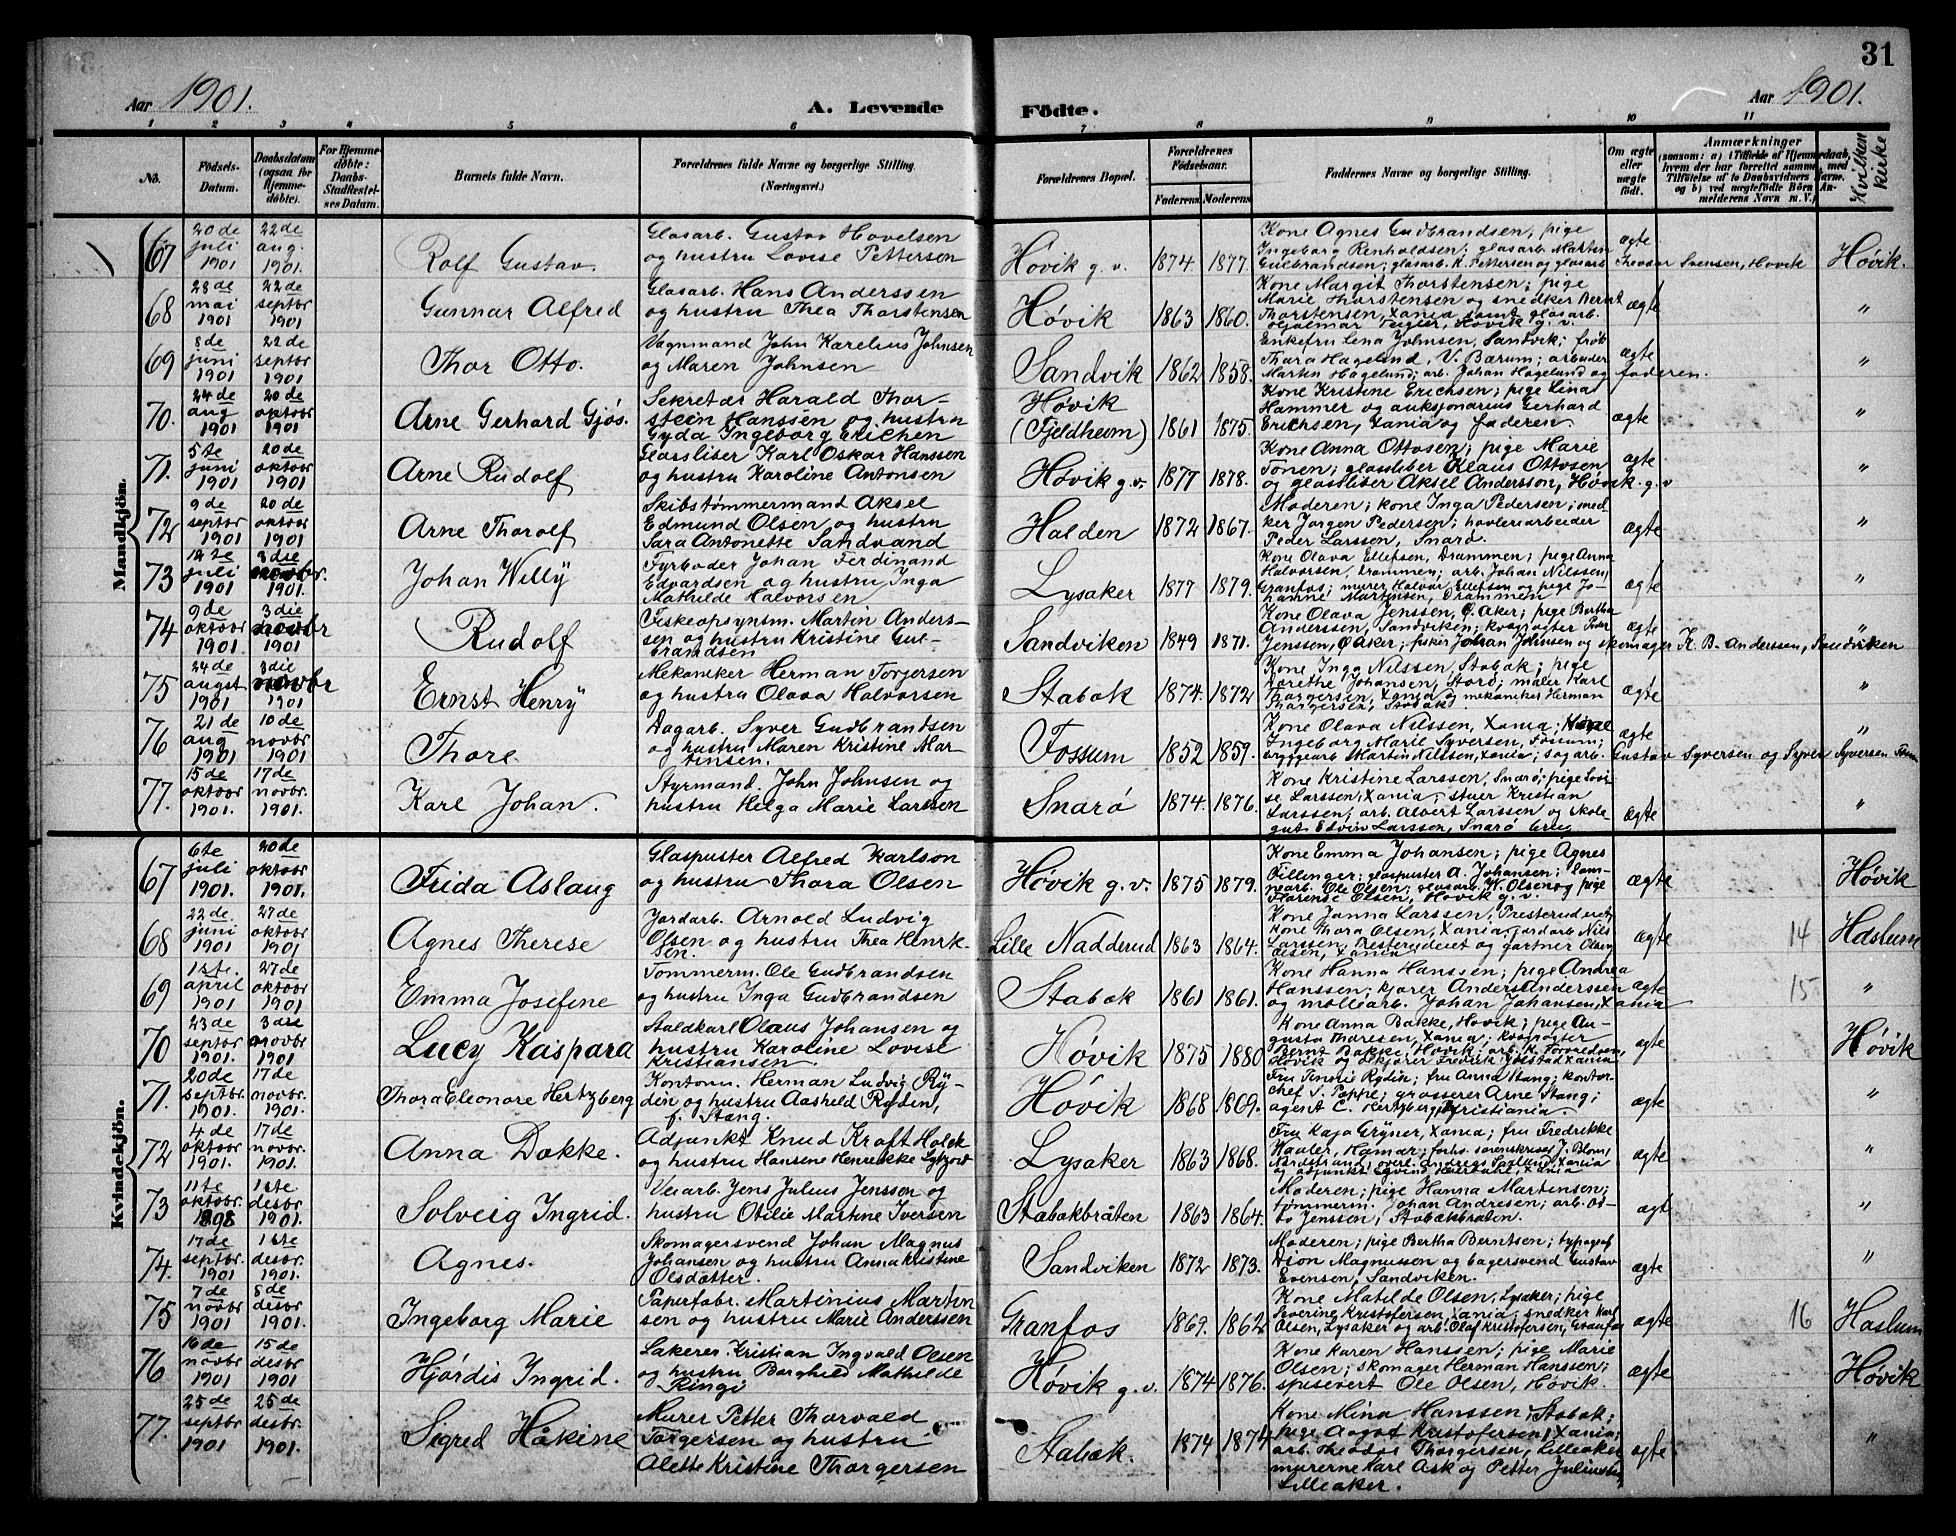 31
Aar 1901.
A. Levende Födte.
Aar 1901.
1 2 3 4 5 6 7 8 9 10 11
No.
Födsels-Datum.
Daabsdatum (ogsaa for Hjemme-döbte).
For Hjemme-döbte: Daabs-Stadfæstel-ses Datum.
Barnets fulde Navn.
Forældrenes fulde Navne og borgerlige Stilling. (Næringsvei.)
Forældrenes Bopæl.
Forældrenes Födselsaar.
Faderens Moderens
Faddernes Navne og borgerlige Stilling.
Om ægte eller uægte födt.
Anmærkninger
(saasom: a) i Tilfælde af Hjemmedaab, hvem der har forrettet samme, med Tilföielse af to Daabsvidners Navne, og b) ved uægtefödte Börn An-melderens Navn m. V.)
Hvilken kirke
Mandkjön.
67 20de juli 1901 22de aug. 1901. Rolf Gustav.
Glasarb. Gustav Hovelsen
og hustru Lovise Pettersen
Høvik g.v. 1874 1877.
Kone Agnes Gudbrandsen, pige
Ingeborg Renholdsen; glasarb. Martin
Gulbrandsen; glasarb. K. Pettersen og glasarb Theodor Svensen, Høvik
ægte Høvik.
68 28de mai 1901 22de septbr 1901 Gunnar Alfred
Glasarb. Hans Anderssen
og hustru Thea Thorstensen
Høvik 1863 1860.
Kone Margit Thorstensen; pige
Marie Thorstensen og snedker Bernt
Thorstensen, Xania samt glasarb.
Hjalmar Teigler, Høvik g.v.
ægte "
69 8de juni 1901 22de septbr 1901 Thor Otto.
Vognmand John Karelius Johnsen
og Maren Johnsen
Sandvik 1862 1858.
Enkefru Lena Johnsen, Sandvik; frøk
Thara Hagelund, V. Bærum; arbeider
Martin Hagelund; arb. Johan Hagelund og faderen.
ægte "
70. 24de aug 1901 20de oktobr 1901 Arne Gerhard Gjøs.
Sekretær Harald Thor-
stein Hanssen og hustru
Gyda Ingeborg Erichen
Høvik (Fjeldheim) 1861 1875.
Kone Kristine Erichsen; pige Lina
Hammer og auksjonarius Gerhard
Erichsen, Xania og faderen.
ægte "
71. 5te juni 1901 20de oktobr 1901 Arne Rudolf
Glassliser Karl Oskar Hanssen
og hustru Karoline Antonsen
Høvik g.v. 1877 1878.
Kone Anna Ottosen; pige Marie
Tønen; glassleber Klaus Ottosen
og glassliser Aksel Andersson, Høvik. g.v
ægte "
72 9de septbr 1901 20de oktobr 1901 Arne Thorolf
Skibstømmermand Aksel
Edmund Olsen og hustru
Sara Antonette Sandvand
Halden 1872 1867.
Moderen; kone Inga Pedersen; smed
ker Jørgen Pedersen; høvleriarbeider
Peder Larssen, Snarø.
ægte "
73 14te juli 1901 3die novbr. 1901. Johan Willy
Fyrbøder Johan Ferdinand
Edvardsen og hustru Inga
Mathilde Halvorsen
Lysaker 1877 1879.
Kone Olava Ellefsen, Drammen; pige Anna
Halvorsen, Drammen; arb. Johan Nilssen,
Granfos; murer Halvor Ellefsen og pige Jo-
hanne Martinsen, Drammen
ægte "
74 9de oktobr 1901. 3die novbr 1901 Rudolf
Fiskeopsyntm. Martin Anders-
sen og hustru Kristine Gul-
brandsen
Sandviken 1849 1871.
Kone Olava Jenssen, Ø. Aker; pige Bertha
Anderssen, Sandviken; kvægrøgter Peder
Jenssen, Ø Aker; fisker Johan Johnsen og skomager K. B. Anderssen, Sandviken
ægte "
75 24de augst 1901 3die novbr 1901 Ernst Henry
Mekaniker Herman Torgersen
og hustru Olava Halvorsen
Stabæk 1874. 1872
Kone Inga Nilssen, Stabæk; pige
Dorethe Johansen, Storø; maler Karl
Thorgersen, Xania og mekaniker Herman
Thorgersen, Stabæk.
ægte "
76 21de aug 1901 10de novbr 1901 Thore.
Dagarb. Syver Gudbrandsen
og hustru Maren Kristine Mar-
tinsen.
Fossum 1852 1859.
Kone Olava Nilssen, Xania; kone
Ingeborg Marie Syversen, Fossum;
bryggearb Martin Nilssen, Xania; sagarb. Gustav Syversen og Syver Syversen Fossum
ægte "
77. 15de oktobr 1901. 17de novbr. 1901. Karl Johan.
Styrmand. John Johnsen og
hustru Helga Marie Larssen
Snarø 1874. 1876.
Kone Kristine Larssen, Snarø; pige Lovi-
se Larssen, Xania; stuer Kristian
Larssen; arb. Alvert Larssen og skole-
gut Edvin Larssen, Snarø
ægte "
Kvindekjön.
67 6te juli 1901. 20de oktobr 1901. Frida Aslaug
Glaspuster Alfred Karlson
og hustru Thora Olsen
Høvik g.v. 1875 1879.
Kone Emma Johansen; pige Agnes
Fillinger; glaspuster A. Johansen; tøm-
mearb. Ole Olsen; glasarb. W. Olsen og pige
Florense Olsen, Høvik g.v.
ægte Høvik
68 22de juni 1901 27de oktobr 1901 Agnes Therese
Jordarb. Arnold Ludvig
Olsen og hustru Thea Henrik-
sen.
Lille Nadderud 1863 1864.
Kone Janna Larssen, Presterudeiet,
kone Thora Olsen, Xania; jordarb Nils
Larssen, Presterudeiet og gartner Olsen
Olsen, Xania
ægte 14 Haslum
69 1ste. april 1901 27de oktobr 1901 Emma Josefine
Tømmerm. Ole Gudbrandsen
og hustru Inga Gudbrandsen
Stabæk 1861 1861.
Kone Hanna Hanssen; pige Andrea
Hanssen; kjører Anders Anderssen
og møllearb. Johan Johansen, Xania
ægte 15 "
70 23de septbr 1901. 3die novbr 1901 Lucy Kaspara
Staldkarl Olaus Johansen og
hustru Karoline Lovise
Kristiansen.
Høvik 1875 1880
Kone Anna Bakke, Høvik; pige Au-
gusta Thoresen, Xania; kvægrøgter
Bernt Bakke Høvik; arb. K. Torvaldsen,
Høvik og ølkjører Fredrik Ølstad Xania
ægte Høvik
71. 20de septbr 1901. 17de novbr. 1901. Thora Eleonore Hertzberg
Kontorm. Herman Ludvig Ry-
din og hustru Aasheld Rydin,
f. Stang.
Høvik 1868 1869.
Fru Tenorie Rydin; fru Anna Stang; kontor-
chef S. Poppe; grosserer Arne Stang;
agent C. Hertzberg, Kristiania.
ægte "
72 4de oktobr 1901. 17de novbr. 1901. Anna Dokke.
Adjunkt Knud Kroft Holck
og hustru Hansene Henrikke
Lysaker 1863 1868.
Fru Kaja Grÿner, Xania; fru Fredrikke
Waaler, Hamar; forhv. sorenskriver J. Blom,
ægte "
73 11te oktobr. 1898 1ste desbr 1901. Solveig Ingrid.
Veiarb. Jens Julius Jensson og
hustru Otilie Martine Iversen
Stabækbråten 1863 1864.
Moderen; pige Hanna Martinsen;
tømmerm. Johan Andresen; arb. Ot-
to Jenssen, Stabækbråten.
ægt "
74. 17de septbr. 1901 1ste desbr. 1901. Agnes.
Skomagersvend Johan Magnus
Johansen og hustru Anna Kristine
Olsdatter.
Sandviken 1872 1873.
Moderen; pige Bertha Berntsen; typograf
Dion Magnussen og bagersvend Gustav
Evensen, Sandviken.
ægte "
75 7de novbr 1901 8de desbr 1901. Ingeborg Marie
Paperfabr. Martinius Martin
sen og hustru Marie Anderssen
Granfos 1869. 1862
Kone Matilde Olsen, Lysaker; pige
Severine Kristofersen, Xania, snedker Karl
Olsen, Lysaker og arb. Olaf Kristofersen, Granfos
ægte 16 Haslum
76 16de novbr 1901 15de desbr 1901 Hjørdis Ingrid.
Lakerer Kristian Ingvald Olsen
og hustru Borghild Mathilde
Ringi
Høvik g.v. 1874 1876.
Kone Karen Hanssen; pige Marie
Olsen; skomager Herman Hanssen;
spisevert Ole Olsen, Høvik.
ægte Høvik
77. 25de septbr 1901 25de desbr. 1901. Sigrid Håkine
Murer Petter Thorvald
Torgersen og hustru
Alette Kristine Thorgersen
Stabæk. 1874 1874
Kone Mina Hanssen, Stabæk;
pige Aagot Kristofersen, Xania;
arb. Theodor Thorgersen, Lilleaker
murerne Karl Ask og Petter Juliussen
Lilleaker.
ægte "